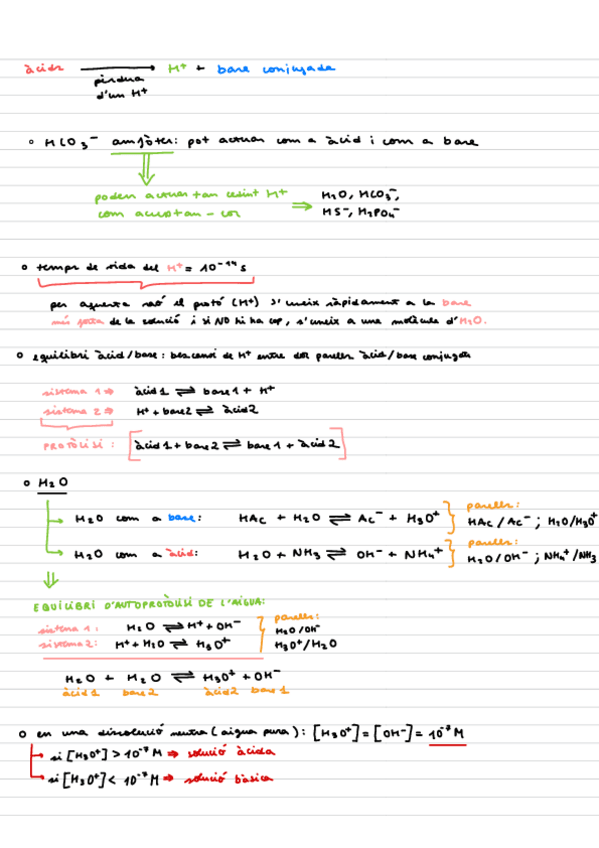 àcids ⟶ H⁺ + base conjugada
pèrdua
d'un H⁺
◦ HCO₃⁻ amfòter: pot actuar com a àcid i com a base
poden actuar tan cedint H⁺ ⇒ H₂O, HCO₃⁻,
com acceptan-los HS⁻, H₂PO₄⁻
◦ temps de vida del H⁺ = 10⁻¹⁴ s
per aquesta raó el protó (H⁺) s'uneix ràpidament a la base
més forta de la solució i si NO hi ha cap, s'uneix a una molècula d'H₂O.
◦ equilibri àcid/base: bescanvi de H⁺ entre dos parelles àcid/base conjugats
sistema 1 ⇒ àcid1 ⇌ base1 + H⁺
sistema 2 ⇒ H⁺ + base2 ⇌ àcid2
PROTÒLISI: [àcid1 + base2 ⇌ base1 + àcid2]
◦ H₂O
parelles:
H₂O com a base: HAc + H₂O ⇌ Ac⁻ + H₃O⁺ HAc/Ac⁻ ; H₂O/H₃O⁺
parelles:
H₂O com a àcid: H₂O + NH₃ ⇌ OH⁻ + NH₄⁺ H₂O/OH⁻ ; NH₄⁺/NH₃
EQUILIBRI D'AUTOPROTÒLISI DE L'AIGUA:
parelles:
sistema 1: H₂O ⇌ H⁺ + OH⁻ H₂O/OH⁻
sistema 2: H⁺ + H₂O ⇌ H₃O⁺ H₃O⁺/H₂O
H₂O + H₂O ⇌ H₃O⁺ + OH⁻
àcid1 base2 àcid2 base1
◦ en una dissolució neutra (aigua pura): [H₃O⁺] = [OH⁻] = 10⁻⁷ M
si [H₃O⁺] > 10⁻⁷ M ⇒ solució àcida
si [H₃O⁺] < 10⁻⁷ M ⇒ solució bàsica